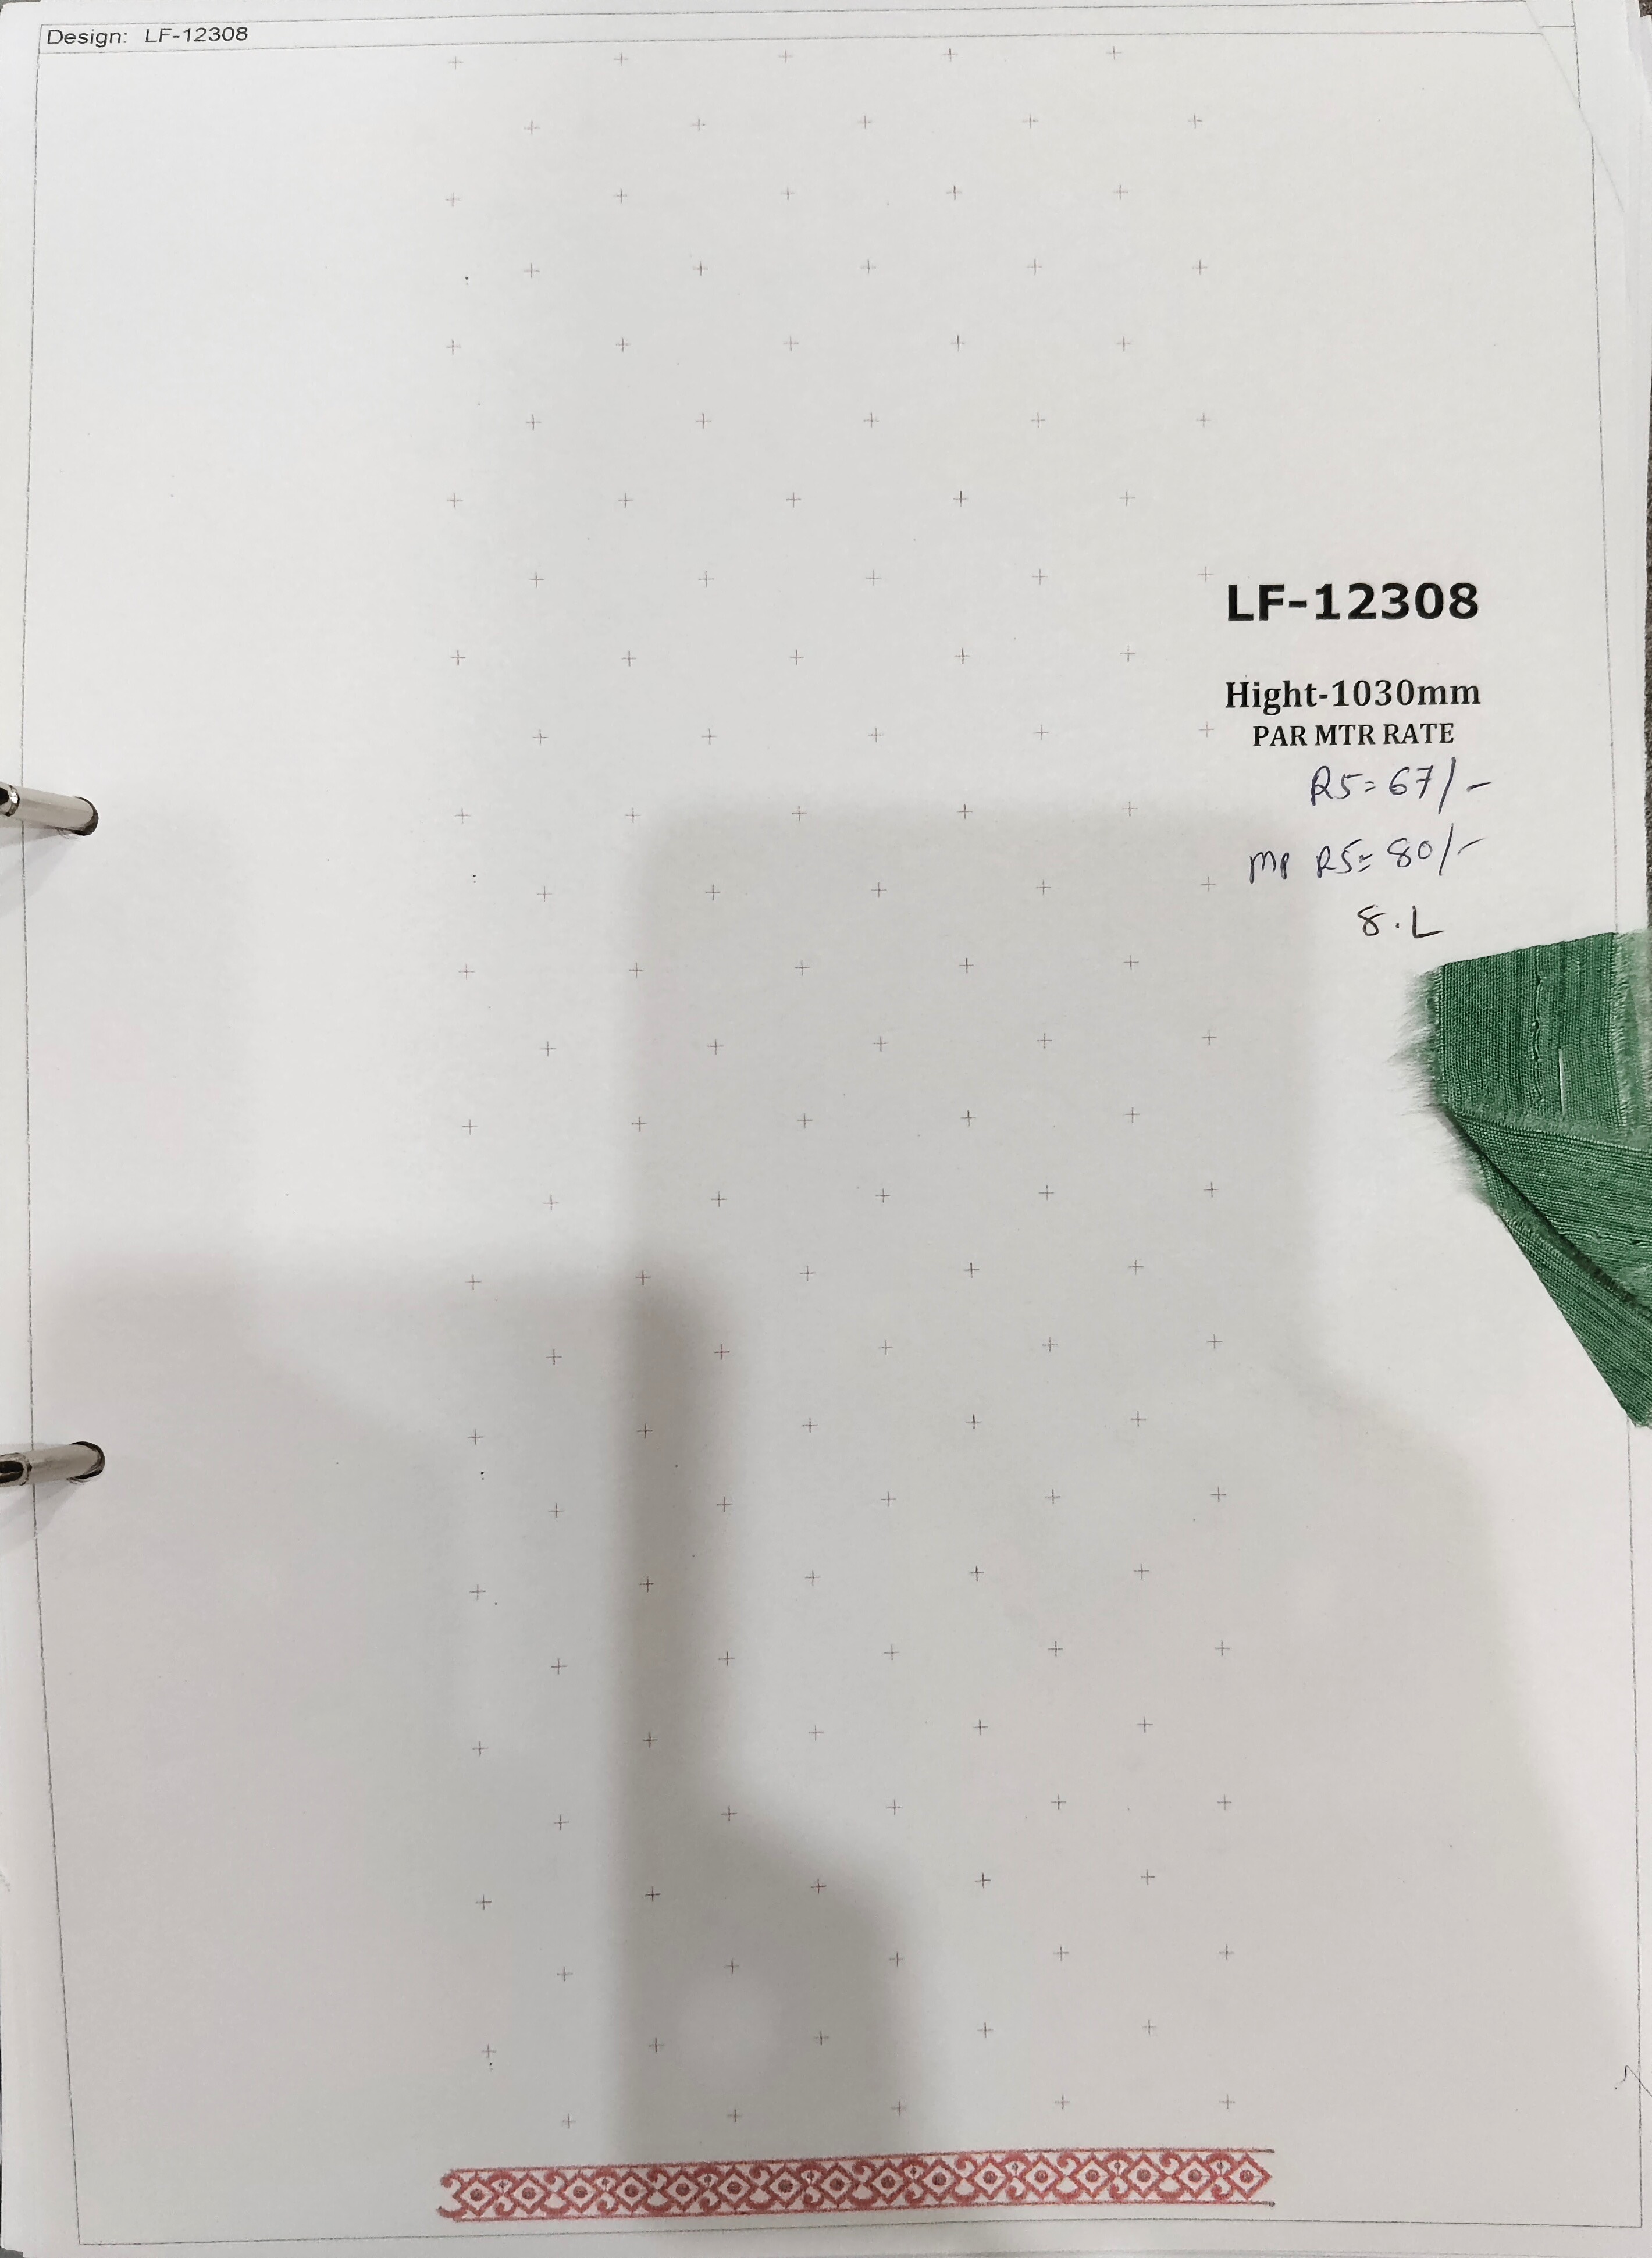 Design: LF-12308
LF-12308
Hight-1030mm
PAR MTR RATE
RS=67/-
MP RS=80/-
8.L